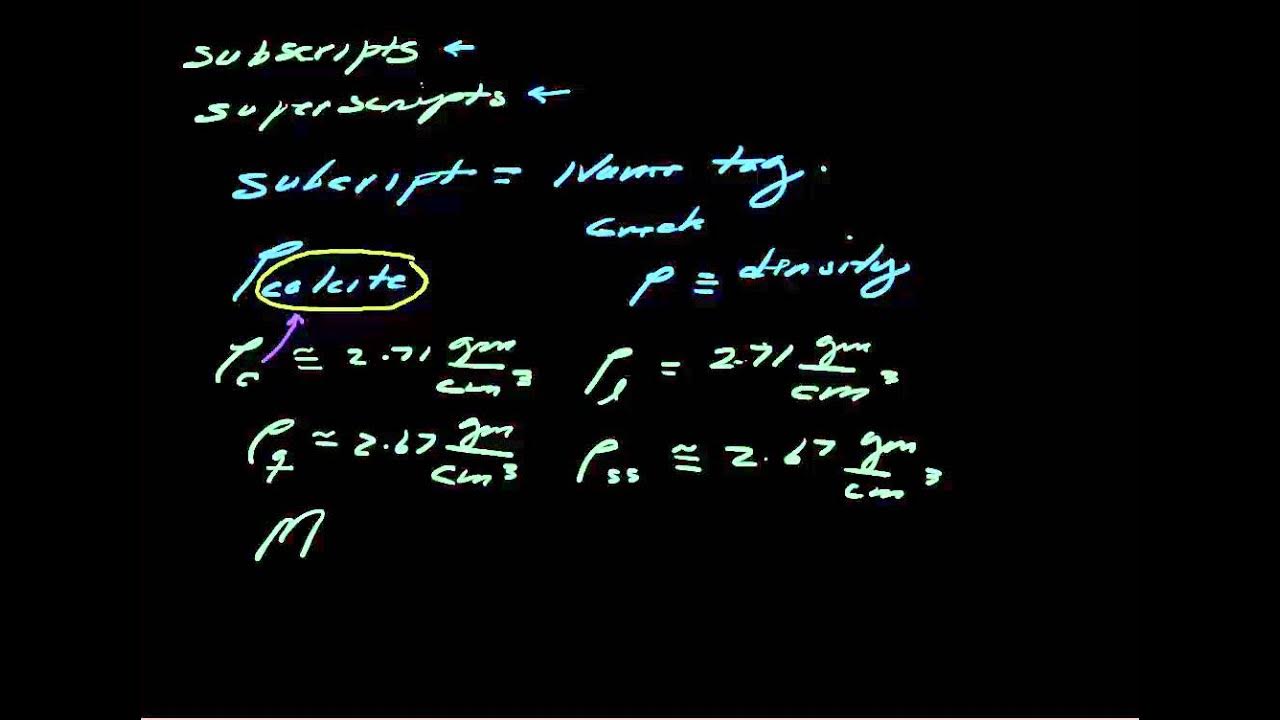 subscripts ←
superscripts ←
subcript = Name tag.
Greek
ρcalcite ρ ≡ density
ρc ≅ 2.71 gm/cm³ ρl = 2.71 gm/cm³
ρq ≃ 2.67 gm/cm³ ρss ≅ 2.67 gm/cm³
M